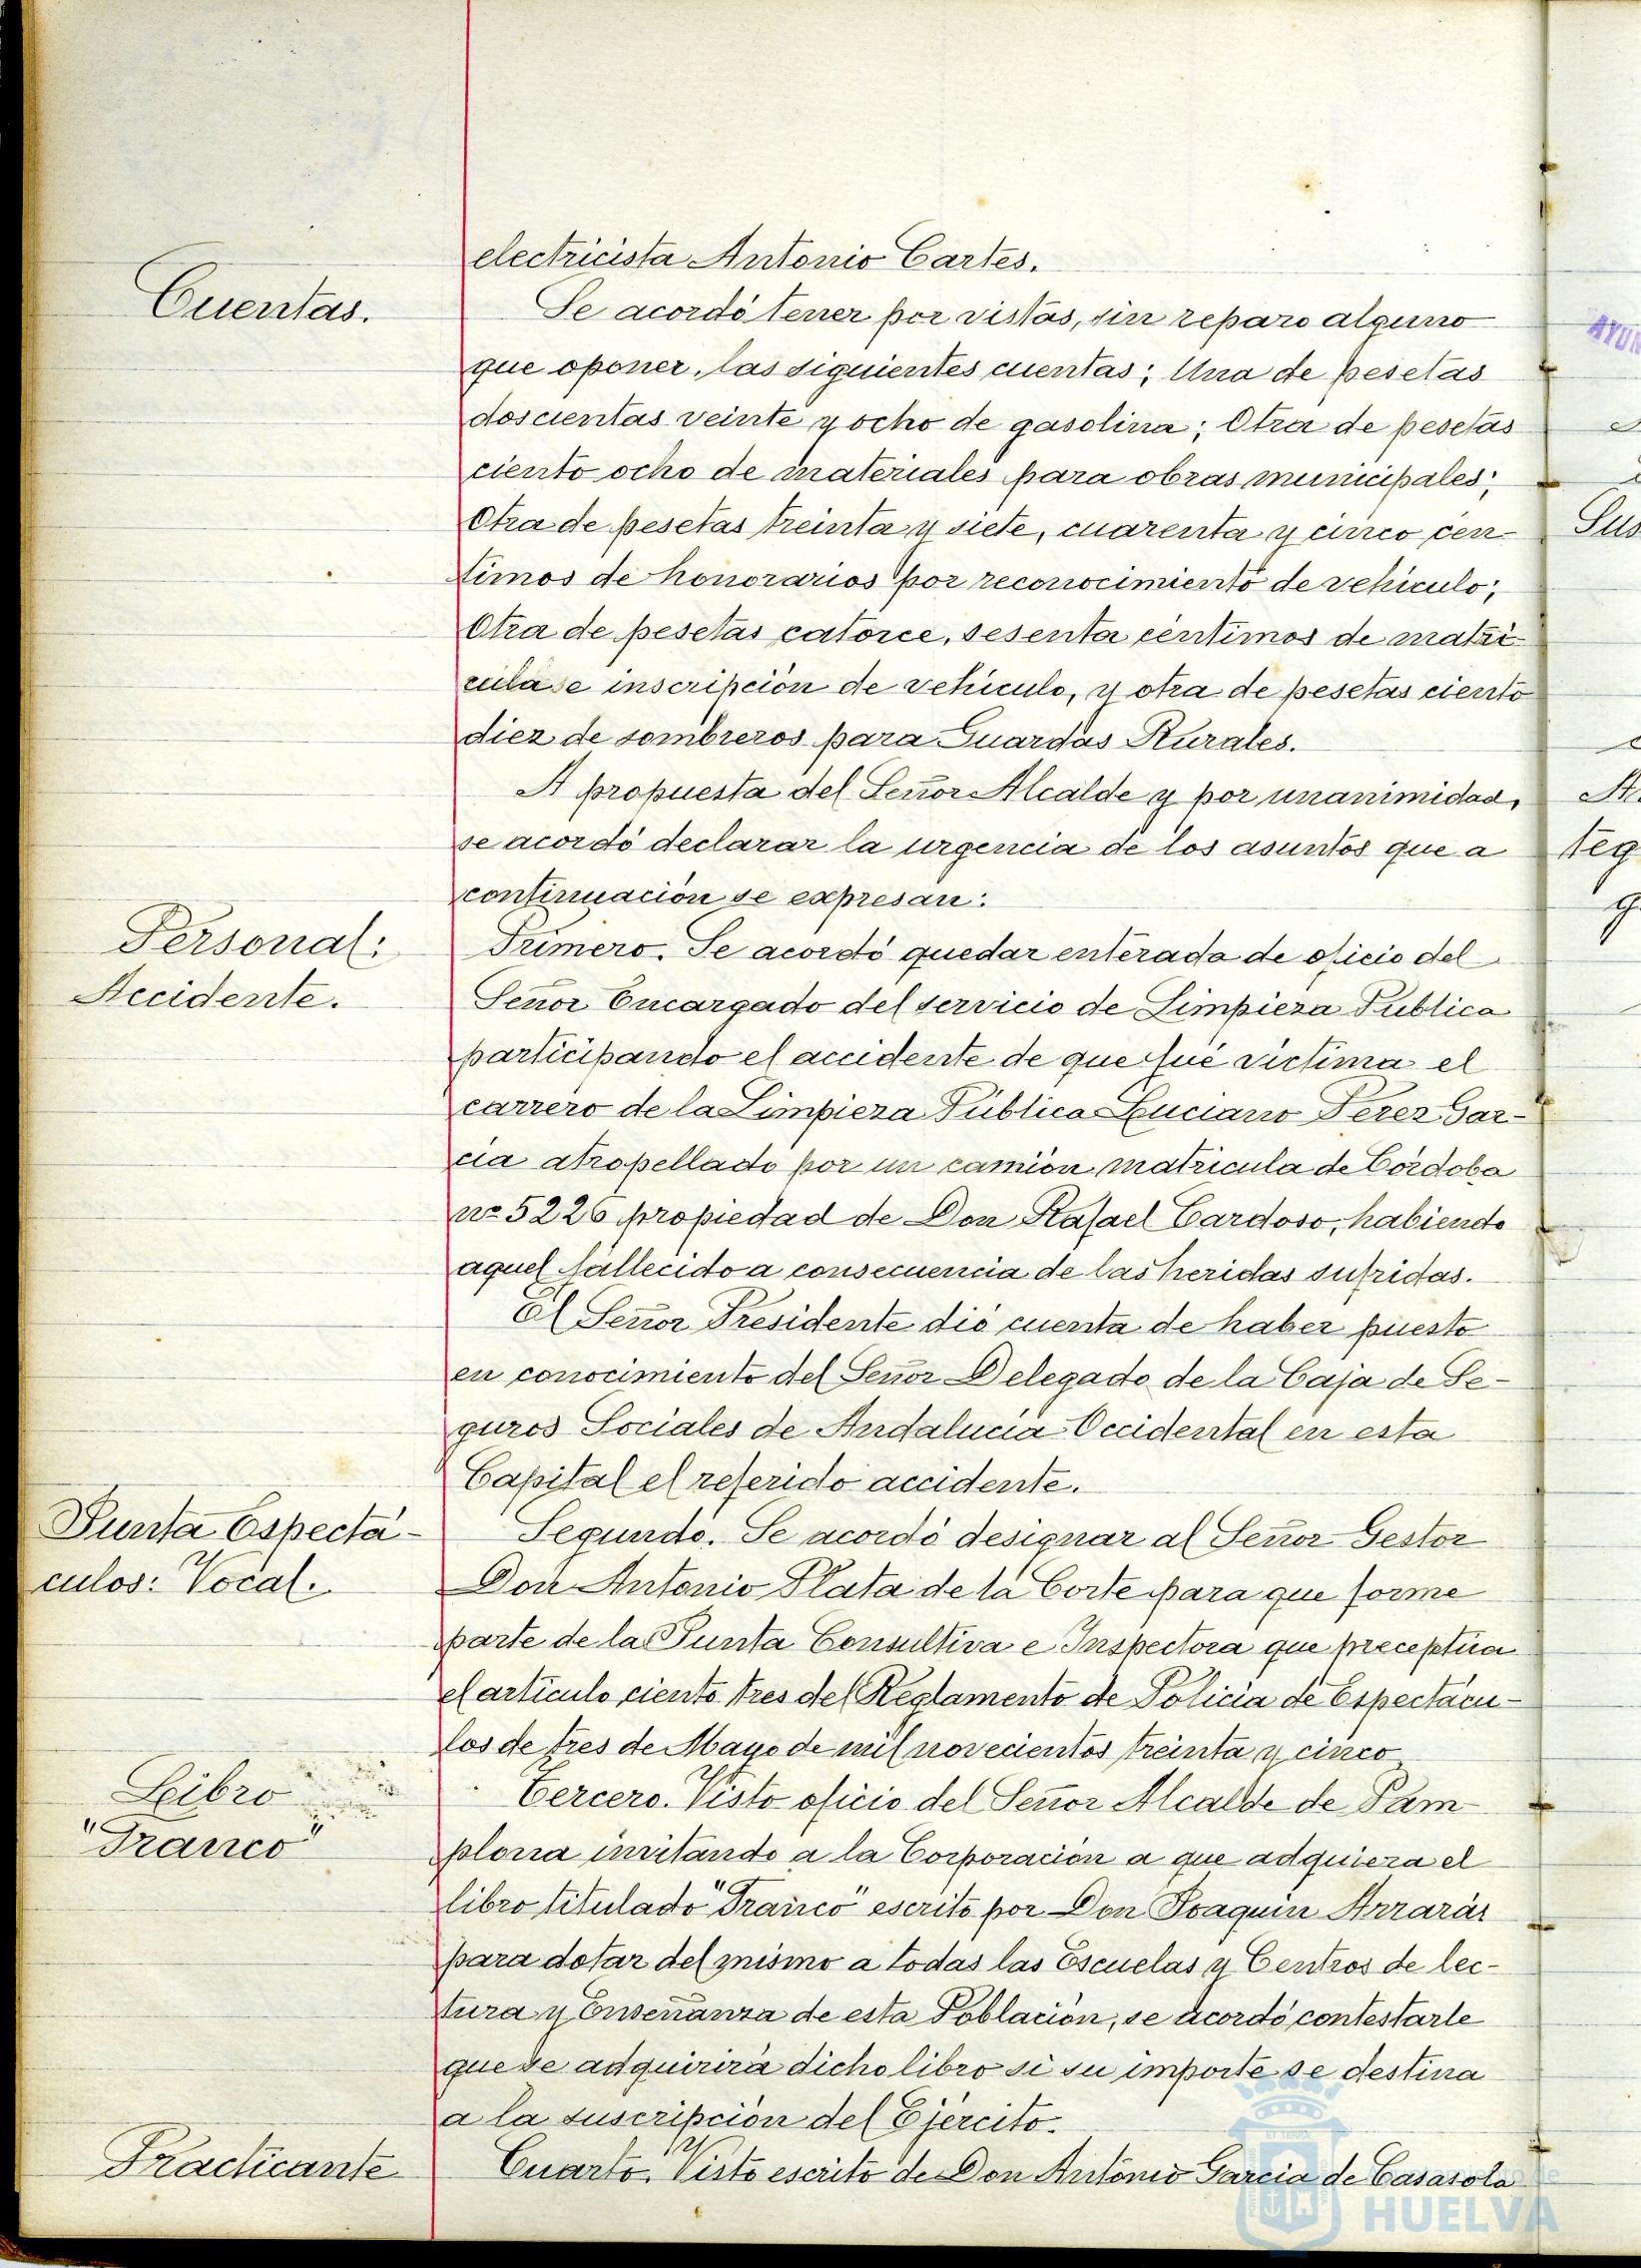 electricista Antonio Cartes.
Cuentas.
Se acordó tener por vistas, sin reparo alguno
que oponer, las siguientes cuentas; Una de pesetas
doscientas veinte y ocho de gasolina; Otra de pesetas
ciento ocho de materiales para obras municipales;
Otra de pesetas treinta y siete, cuarenta y cinco cen-
timos de honorarios por reconocimiento de vehiculo;
Otra de pesetas catorce, sesenta céntimos de matri-
cula se inscripción de vehiculo, y otra de pesetas ciento
diez de sombreros para Guardas Rurales.
A propuesta del Señor Alcalde y por unanimidad,
se acordó declarar la urgencia de los asuntos que a
continuación se expresan:
Personal:
Accidente.
Primero. Se acordó quedar enterada de oficio del
Señor Encargado del servicio de Limpieza Publica
participando el accidente de que fué victima el
carrero de la Limpieza Pública Luciano Perez Gar-
cia atropellado por un camión matricula de Córdoba
nº 5226 propiedad de Don Rafael Cardoso, habiendo
aquel fallecido a consecuencia de las heridas sufridas.
El Señor Presidente dió cuenta de haber puesto
en conocimiento del Señor Delegado de la Caja de Se-
guros Sociales de Andalucia Occidental en esta
Capital el referido accidente.
Junta Espectá-
culos: Vocal.
Segundo. Se acordó designar al Señor Gestor
Don Antonio Plata de la Corte para que forme
parte de la Junta Consultiva e Inspectora que preceptúa
el articulo ciento tres del Reglamento de Policia de Espectácu-
los de tres de Mayo de mil novecientos treinta y cinco
Libro
"Franco"
Tercero. Visto oficio del Señor Alcalde de Pam-
plona invitando a la Corporación a que adquiera el
libro titulado "Franco" escrito por Don Joaquin Arrarás
para dotar del mismo a todas las Escuelas y Centros de lec-
tura y Enseñanza de esta Población, se acordó contestarle
que se adquirirá dicho libro si su importe se destina
a la suscripción del Ejército.
Practicante
Cuarto. Visto escrito de Don Antonio Garcia de Casasola
HUELVA